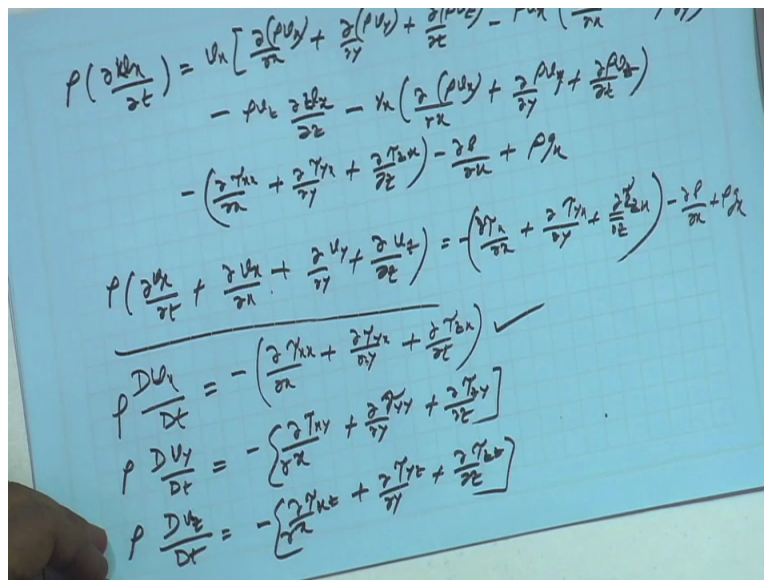 ρ(∂v_x/∂t) = v_x[∂(ρv_x)/∂x + ∂(ρv_y)/∂y + ∂(ρv_z)/∂z] - ρv_x(
- ρv_z ∂v_x/∂z - v_x(∂(ρv_x)/∂x + ∂ρv_y/∂y + ∂ρv_z/∂z)
- (∂τ_xx/∂x + ∂τ_yx/∂y + ∂τ_zx/∂z) - ∂P/∂x + ρg_x
ρ(∂v_x/∂t + ∂v_x/∂x + ∂v_y/∂y + ∂v_z/∂z) = -(∂τ_x/∂x + ∂τ_yx/∂y + ∂τ_zx/∂z) - ∂P/∂x + ρg_x
ρ Dv_x/Dt = -(∂τ_xx/∂x + ∂τ_yx/∂y + ∂τ_zx/∂z) ✓
ρ Dv_y/Dt = -{∂τ_xy/∂x + ∂τ_yy/∂y + ∂τ_zy/∂z]
ρ Dv_z/Dt = -{∂τ_xz/∂x + ∂τ_yz/∂y + ∂τ_zz/∂z]